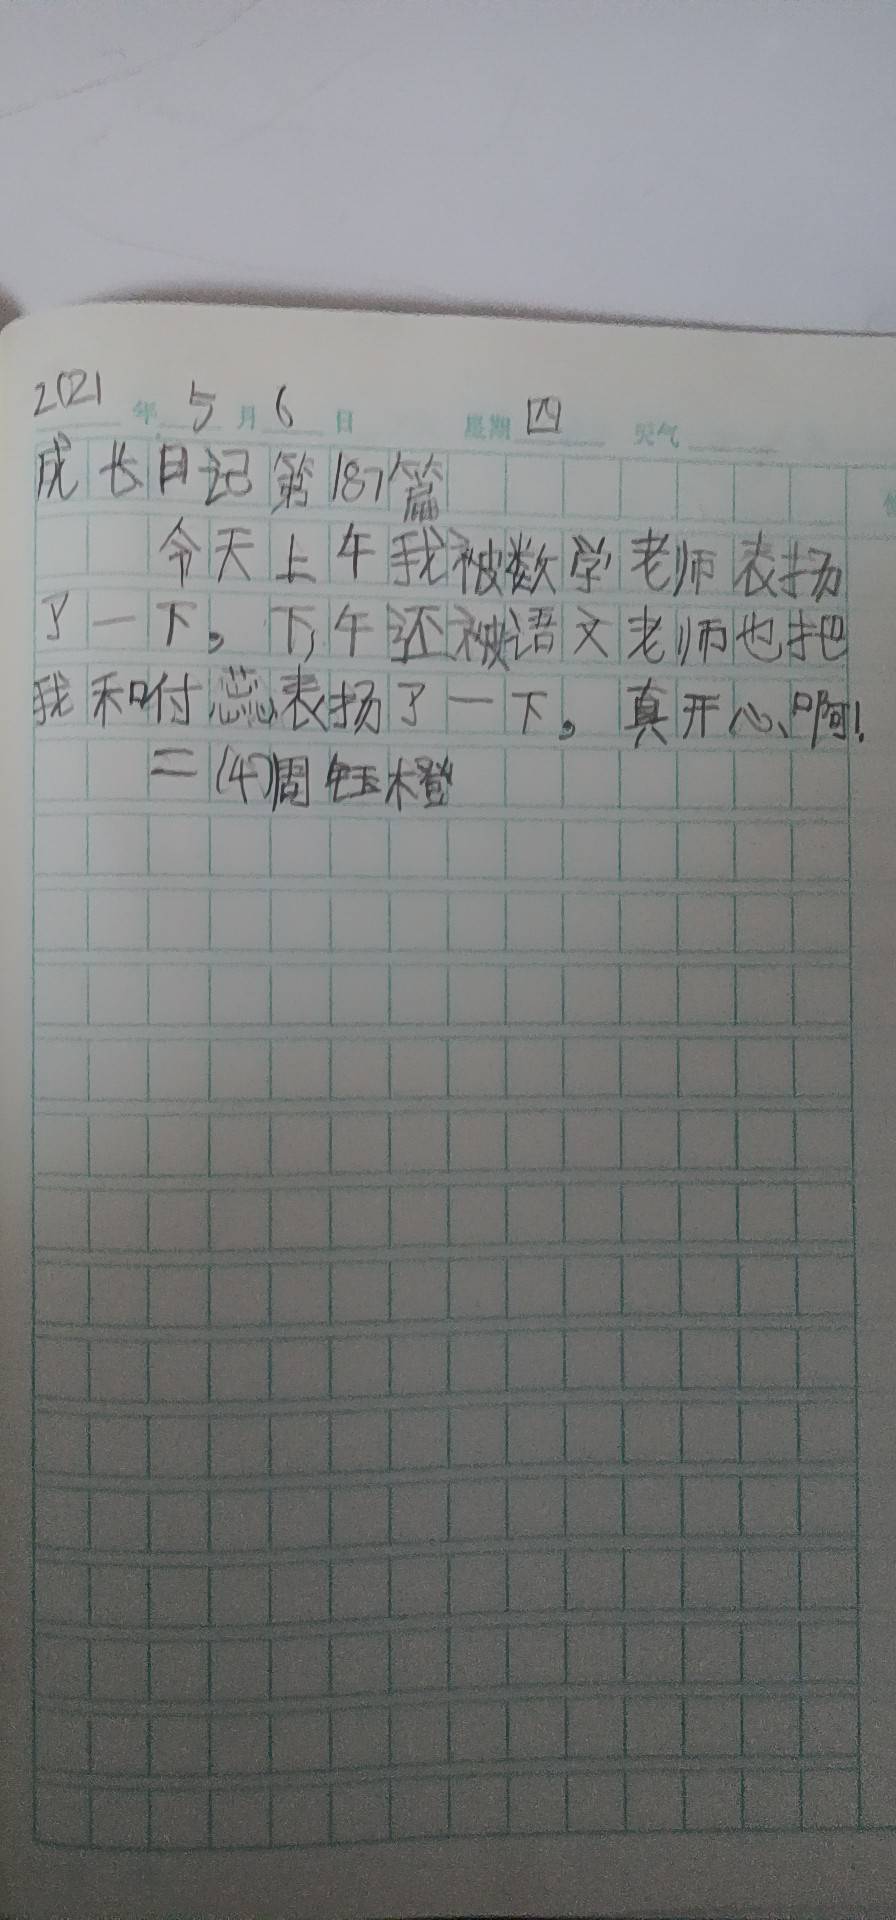 2021年5月6日 星期四 天气
成长日记第187篇
今天上午我被数学老师表扬
了一下。下午还被语文老师也把
我和付蕊表扬了一下。真开心啊!
二(4)周钰橙